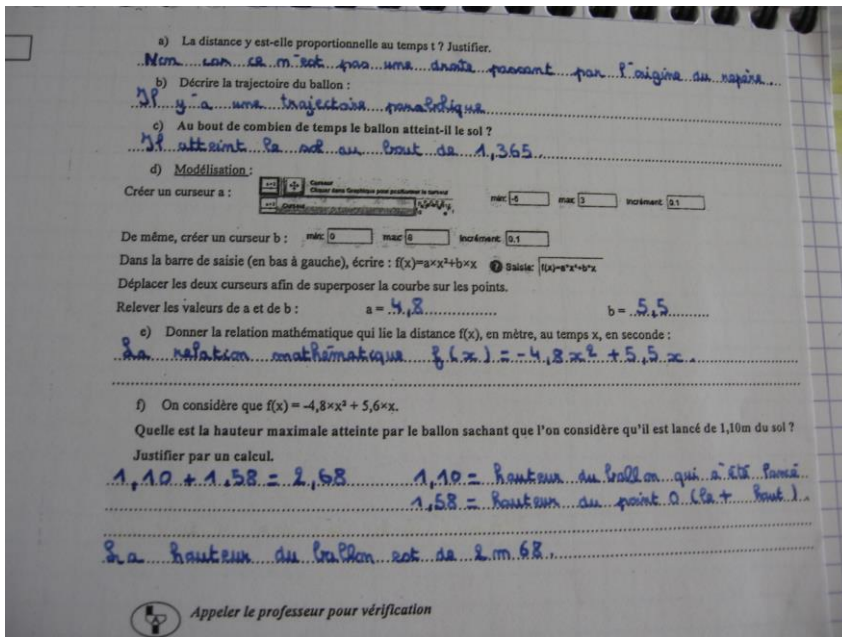 a) La distance y est-elle proportionnelle au temps t ? Justifier.
Non car ce n'est pas une droite passant par l'origine du repère.
b) Décrire la trajectoire du ballon :
Il y a une trajectoire parabolique
c) Au bout de combien de temps le ballon atteint-il le sol ?
Il atteint le sol au bout de 1,365.
d) Modélisation :
Créer un curseur a : a=2 Curseur
Cliquer dans Graphique pour positionner le curseur
a=2 Curseur min: -5 max: 3 Incrément: 0.1
De même, créer un curseur b : min: 0 max: 6 Incrément: 0.1
Dans la barre de saisie (en bas à gauche), écrire : f(x)=a×x²+b×x Saisie: f(x)=a*x²+b*x
Déplacer les deux curseurs afin de superposer la courbe sur les points.
Relever les valeurs de a et de b : a = 4,8 b = 5,5
e) Donner la relation mathématique qui lie la distance f(x), en mètre, au temps x, en seconde :
La relation mathématique f(x) = -4,8x² + 5,5x.
f) On considère que f(x) = -4,8×x² + 5,6×x.
Quelle est la hauteur maximale atteinte par le ballon sachant que l'on considère qu'il est lancé de 1,10m du sol ?
Justifier par un calcul.
1,10 + 1,58 = 2,68 1,10 = hauteur du ballon qui a été lancé
1,58 = hauteur du point O (le + haut).
La hauteur du ballon est de 2 m 68.
Appeler le professeur pour vérification